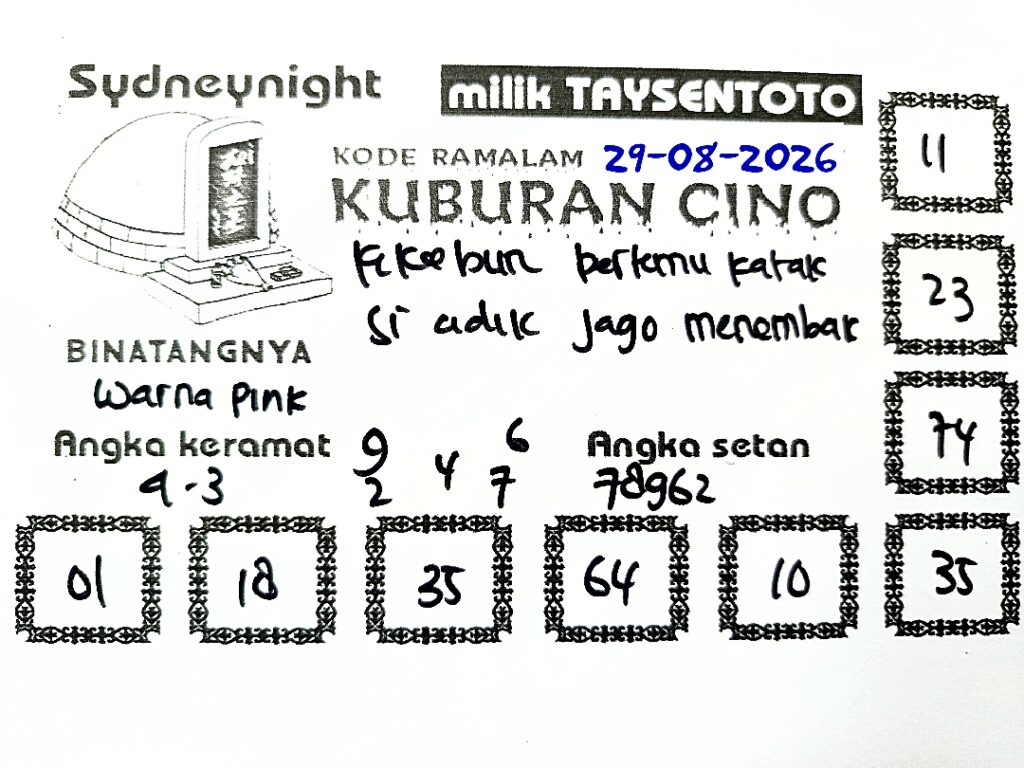 Sydneynight
milik TAYSENTOTO
KODE RAMALAM 29-08-2026
KUBURAN CINO
Ke kebun bertemu katak
Si adik jago menembak
BINATANGNYA
Warna Pink
Angka keramat
9 4 6
2 7
Angka setan
9-3
78962
11
23
74
01
18
35
64
10
35